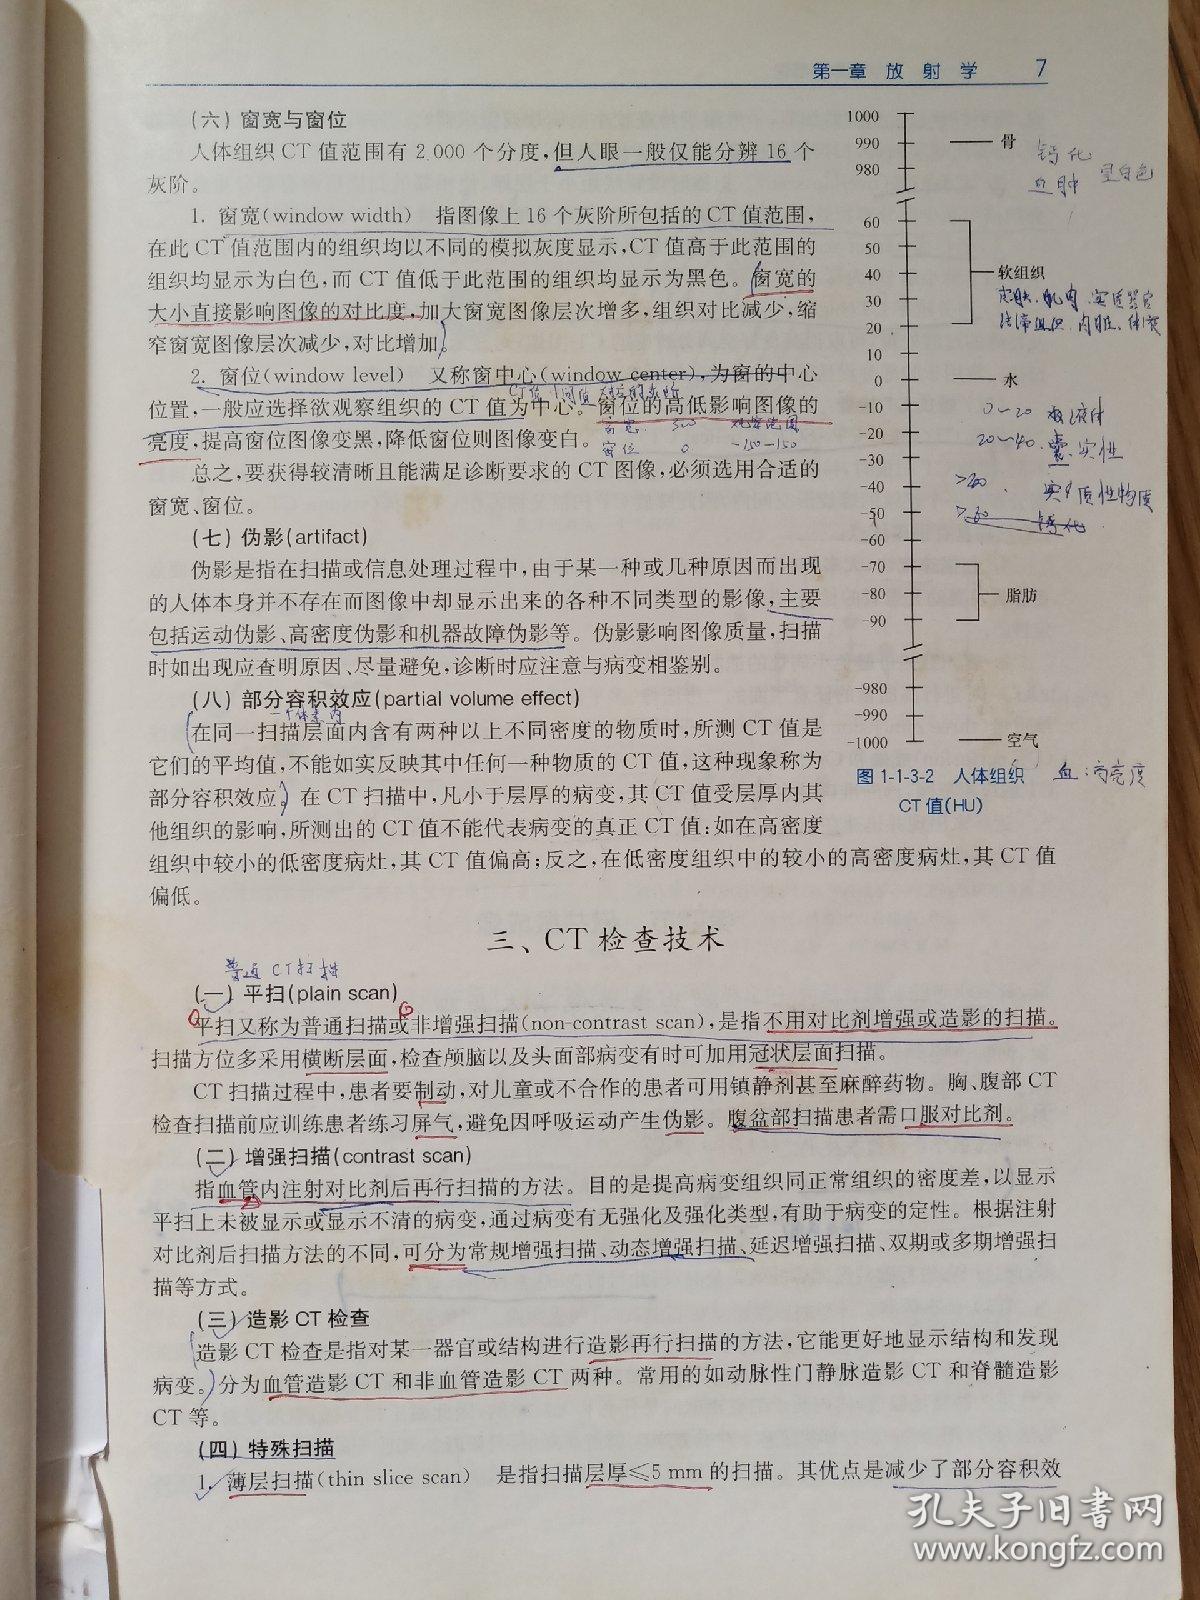 第一章 放射学 7
(六) 窗宽与窗位
人体组织 CT 值范围有 2 000 个分度,但人眼一般仅能分辨 16 个
灰阶。
1. 窗宽(window width) 指图像上 16 个灰阶所包括的 CT 值范围,
在此 CT 值范围内的组织均以不同的模拟灰度显示,CT 值高于此范围的
组织均显示为白色,而 CT 值低于此范围的组织均显示为黑色。窗宽的
大小直接影响图像的对比度,加大窗宽图像层次增多,组织对比减少,缩
窄窗宽图像层次减少,对比增加。
2. 窗位(window level) 又称窗中心(window center),为窗的中心
位置,一般应选择欲观察组织的 CT 值为中心。窗位的高低影响图像的
窗宽 300 观察范围
亮度,提高窗位图像变黑,降低窗位则图像变白。
窗位 0 -150-150
总之,要获得较清晰且能满足诊断要求的 CT 图像,必须选用合适的
窗宽、窗位。
(七) 伪影(artifact)
伪影是指在扫描或信息处理过程中,由于某一种或几种原因而出现
的人体本身并不存在而图像中却显示出来的各种不同类型的影像,主要
包括运动伪影、高密度伪影和机器故障伪影等。伪影影响图像质量,扫描
时如出现应查明原因、尽量避免,诊断时应注意与病变相鉴别。
(八) 部分容积效应(partial volume effect)
一个体素内
在同一扫描层面内含有两种以上不同密度的物质时,所测 CT 值是
它们的平均值,不能如实反映其中任何一种物质的 CT 值,这种现象称为
部分容积效应。在 CT 扫描中,凡小于层厚的病变,其 CT 值受层厚内其
他组织的影响,所测出的 CT 值不能代表病变的真正 CT 值:如在高密度
组织中较小的低密度病灶,其 CT 值偏高;反之,在低密度组织中的较小的高密度病灶,其 CT 值
偏低。
1000
990 骨
980
钙化
血肿 呈白色
60
50
40 软组织
30
20
皮肤、肌肉、实质器官
结缔组织、内脏、
10
0 水
-10
0~20 液体
-20
20~40 囊实性
-30
-40
>60 实质性物质
-50
>60 钙化
-60
-70
-80 脂肪
-90
-980
-990
-1000 空气
图 1-1-3-2 人体组织
CT 值(HU)
血:高亮度
三、CT 检查技术
普通 CT扫描
(一) 平扫(plain scan)
平扫又称为普通扫描或非增强扫描(non-contrast scan),是指不用对比剂增强或造影的扫描。
扫描方位多采用横断层面,检查颅脑以及头面部病变有时可加用冠状层面扫描。
CT 扫描过程中,患者要制动,对儿童或不合作的患者可用镇静剂甚至麻醉药物。胸、腹部 CT
检查扫描前应训练患者练习屏气,避免因呼吸运动产生伪影。腹盆部扫描患者需口服对比剂。
(二) 增强扫描(contrast scan)
指血管内注射对比剂后再行扫描的方法。目的是提高病变组织同正常组织的密度差,以显示
平扫上未被显示或显示不清的病变,通过病变有无强化及强化类型,有助于病变的定性。根据注射
对比剂后扫描方法的不同,可分为常规增强扫描、动态增强扫描、延迟增强扫描、双期或多期增强扫
描等方式。
(三) 造影 CT 检查
造影 CT 检查是指对某一器官或结构进行造影再行扫描的方法,它能更好地显示结构和发现
病变。分为血管造影 CT 和非血管造影 CT 两种。常用的如动脉性门静脉造影 CT 和脊髓造影
CT 等。
(四) 特殊扫描
1. 薄层扫描(thin slice scan) 是指扫描层厚≤5 mm 的扫描。其优点是减少了部分容积效
孔夫子旧书网
www.kongfz.com